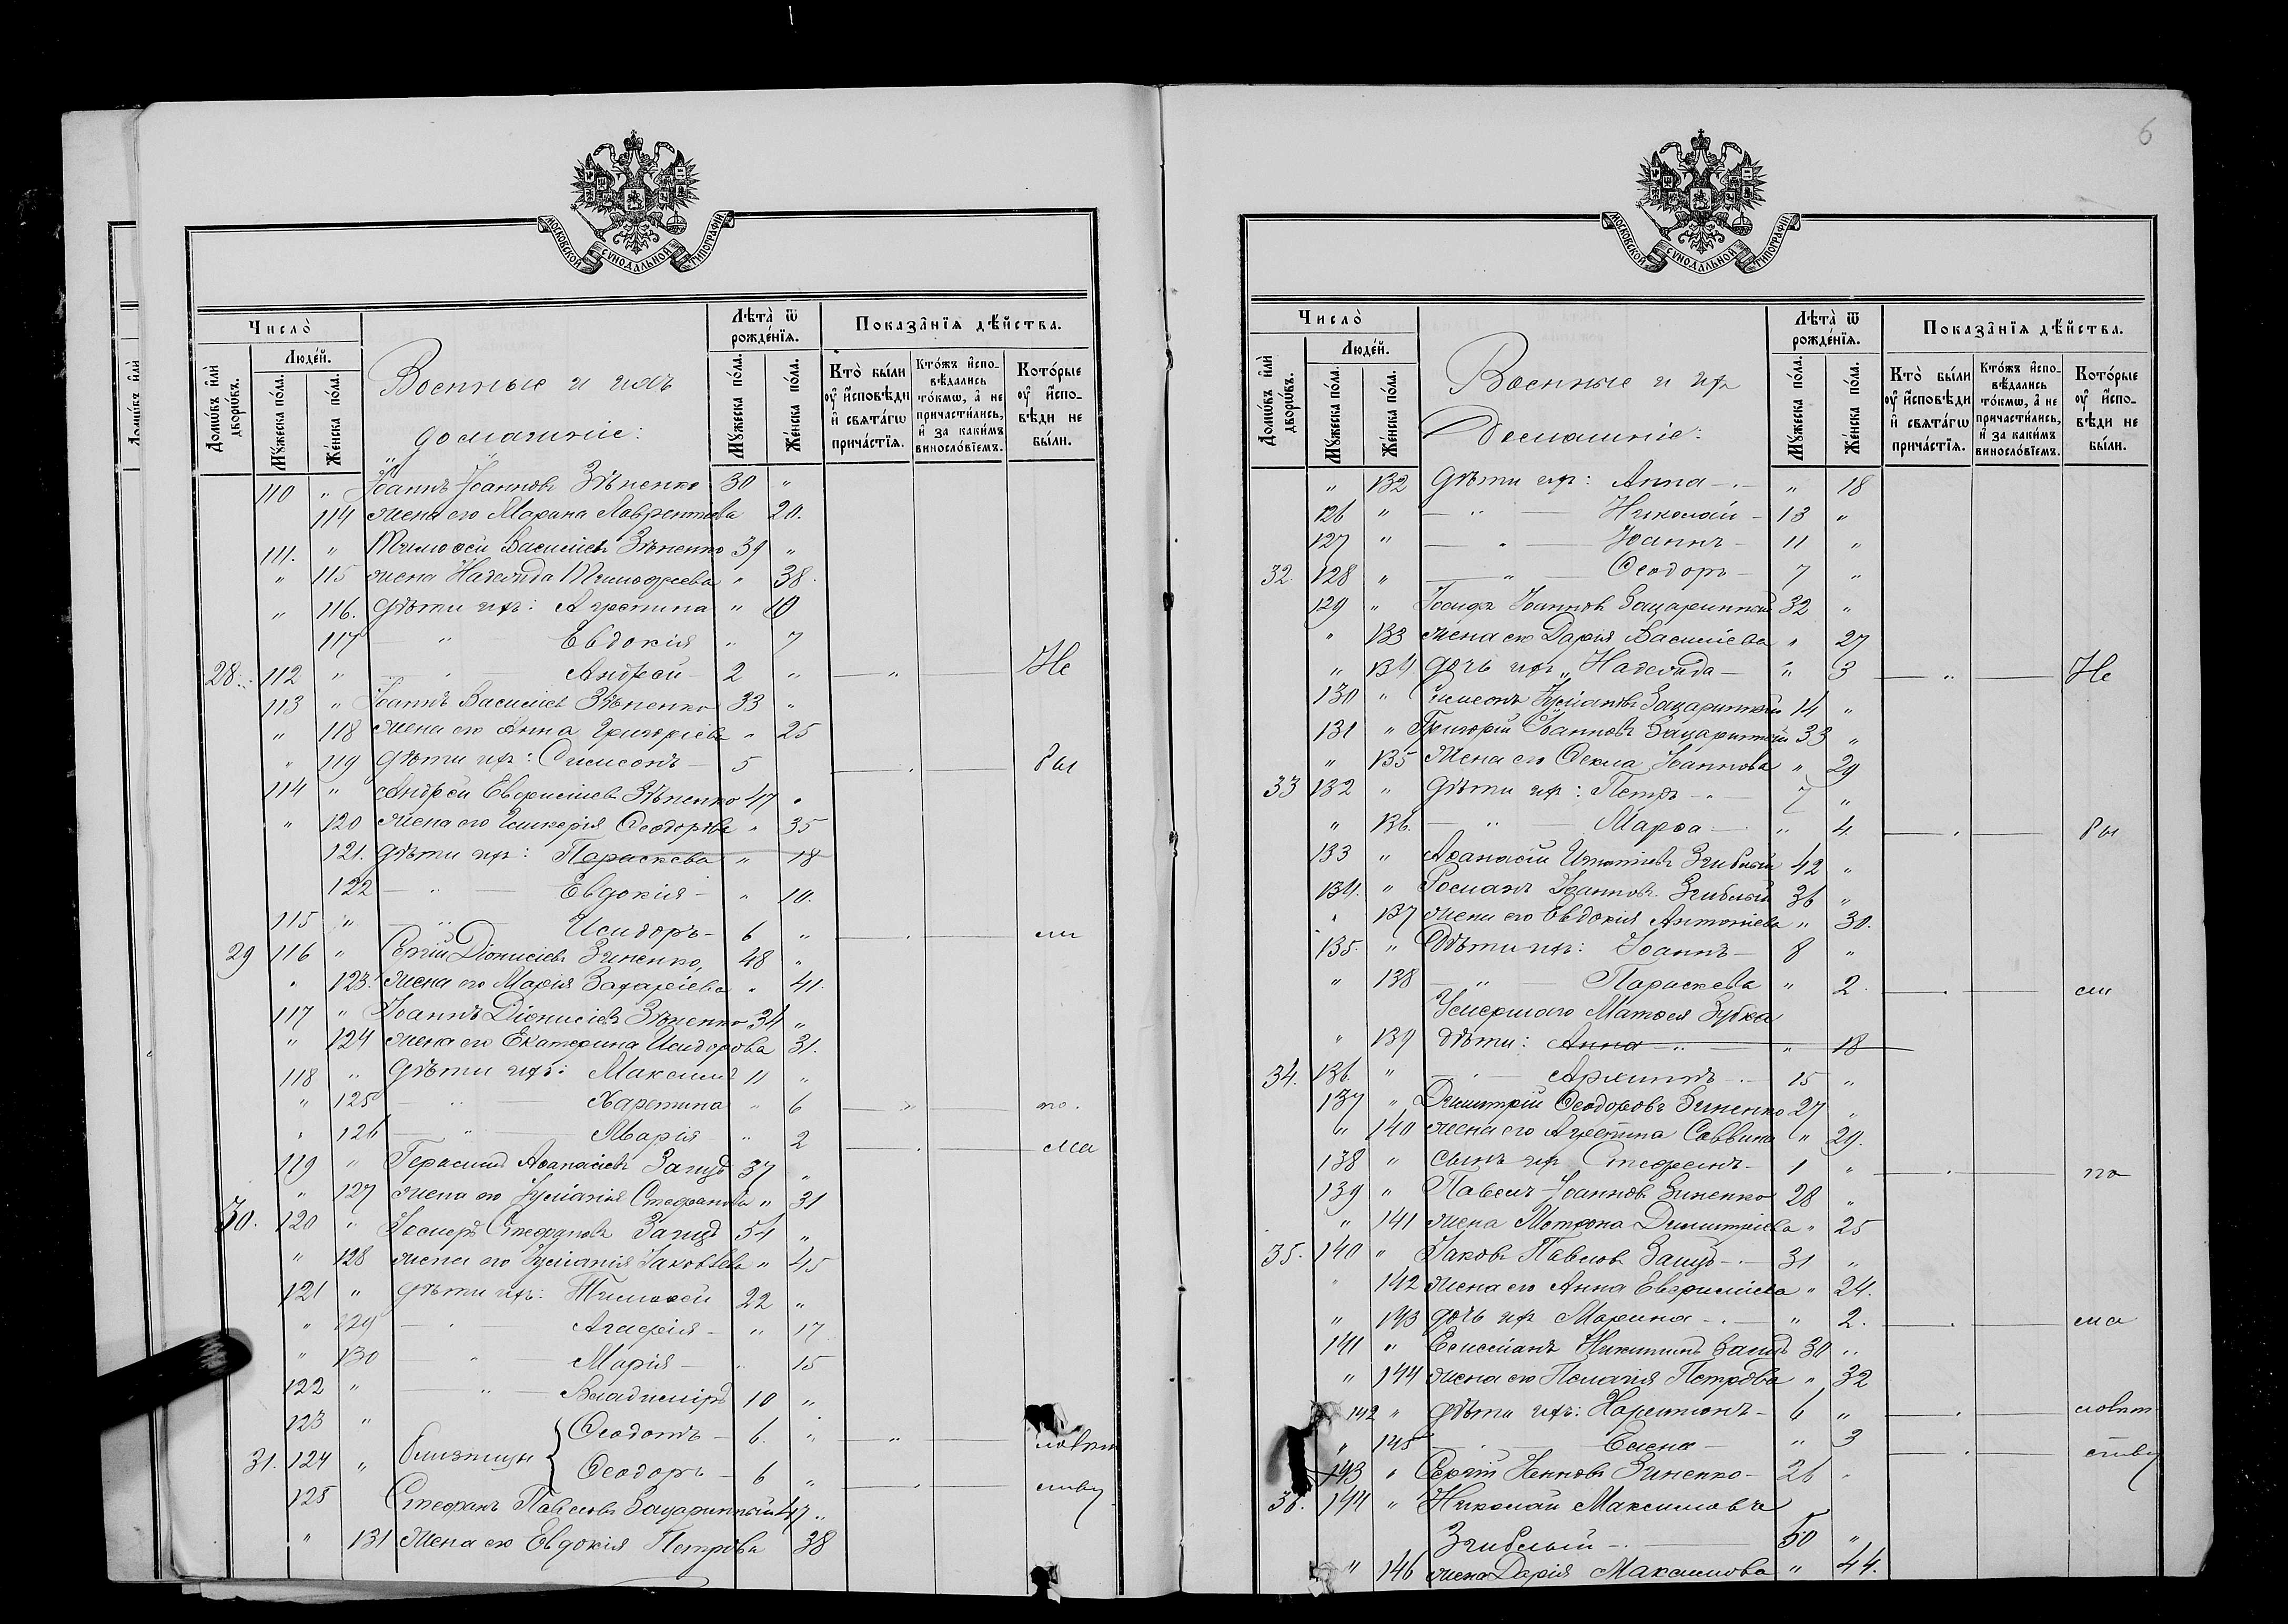 МОСКОВСКОЙ СУНОДАЛЬНОЙ ТИПОГРАФІИ
Число̀
Людéй.
Домѡ́въ и҆лѝ дворѡ́въ.
Мꙋ́жеска по́ла.
Же́нска по́ла.
Военные и ихъ
домашніе:
Лѣта̀ ѿ рожде́нїѧ.
Мꙋ́жеска по́ла.
Же́нска по́ла.
Показа̑нїѧ дѣ́йства.
Кто̀ бы́ли оу҆ и҆сповѣди и҆ свѧта́гѡ прича́стїѧ.
Кто́жъ и҆спо-вѣдались то́кмѡ, а҆ не причасти́лись, и҆ за каки́мъ винослóвїемъ.
Кото́рые оу҆ и҆спо-вѣди не бы́ли.
110 " Іоаннъ Іоанновъ Зѣненко 30 "
114 жена его Марина Лаврентіева 20.
111. " Тимоѳей Василіевъ Зѣненко 39 "
" 115 жена Надежда Тимофеева " 38.
" 116. дѣти ихъ: Агрепина " 10
117 " Евдокія " 7
28. 112 " Андрей 2 " — " — Не
113 " Іоаннъ Василіевъ Зѣненко 33 "
" 118 жена его Анна Григоріева " 25
" 119 дѣти ихъ: Симеонъ — 5 — бы
114 " Андрей Евфиміевъ Зѣненко 47 "
" 120 жена его Гликерія Ѳеодорова " 35
121. дѣти ихъ: Параскева " 18
122 — " — Евдокія — " 10.
115 " — " — Исидоръ — 6 " — ли
29 116 " Сергій Діонисіевъ Зиненко, 48 "
" 123. жена его Марія Захаріева " 41.
117 " Іоаннъ Діонисіевъ Зѣненко 34 "
" 124 жена его Екатерина Исидорова 31.
118 " дѣти ихъ: Максимъ 11 "
" 125 — " — Харетина " 6 — " — по.
" 126 — " — Марія " 2 — ма
119 " Герасимъ Аѳанасіевъ Загидъ 37 "
" 127 жена его Іуліанія Стефанова " 31
30. 120 " Іосифъ Стефановъ Загидъ 54 "
" 128 жена его Іуліанія Іаковлева " 45
121 " дѣти ихъ: Тимоѳей 22 "
" 129 — " — Агафія — " 17
" 130 — " — Марія — " 15
122 " — " — Владиміръ 10 "
123 " Ѳеодотъ — 6. " — " — ловѣт
31. 124 " близнецы { Ѳеодоръ — 6 " — ству
125 Стефанъ Павловъ Зацаринный 47 "
" 131 жена его Евдокія Петрова 38
6
МОСКОВСКОЙ СУНОДАЛЬНОЙ ТИПОГРАФІИ
Число̀
Людéй.
Домѡ́въ и҆лѝ дворѡ́въ.
Мꙋ́жеска по́ла.
Же́нска по́ла.
Военные и их
Домашніе:
Лѣта̀ ѿ рожде́нїѧ.
Мꙋ́жеска по́ла.
Же́нска по́ла.
Показа̑нїѧ дѣ́йства.
Кто̀ бы́ли оу҆ и҆сповѣди и҆ свѧта́гѡ прича́стїѧ.
Кто́жъ и҆спо-вѣдались то́кмѡ, а҆ не причасти́лись, и҆ за каки́мъ винослóвїемъ.
Кото́рые оу҆ и҆спо-вѣди не бы́ли.
" 132 дѣти их: Анна — " 18
126 " — " — Николай — 13 "
127 " — " — Іоаннъ — 11 "
32. 128 " — " — Ѳеодоръ — 7 "
129 " Іосифъ Іоанновъ Зацаринный 32 "
" 133 жена его Дарія Василіева " 27
" 134 дочь их " Надежда — " 3 — " — Не
130 " Симеонъ Іуліановъ Зацаринный 14 "
131 " Григорій Іоанновъ Зацаринный 33 "
" 135 Жена его Ѳекла Іоаннова " 29
33 132 " дѣти их: Петръ — 7 "
" 136. — " — Марѳа — " 4. — бы
133 " Аѳанасій Игнатіевъ Згиблый 42 "
134. " Романъ Іоанновъ Згиблый 36 "
" 137 жена его Евдокія Антоніева " 30.
135. " Дѣти их: Іоаннъ — 8 "
" 138 — " — Параскева " 2. — ли
Умершаго Матѳея Зубка
" 139 дѣти: Анна — " — " 18
34. 136. " — Архиппъ — 15 "
137 " Димитрій Ѳеодоровъ Зиненко 27 "
" 140 жена его Агрепина Саввина " 29.
138 " сынъ их Стефанъ — 1 " — по
139 " Павелъ Іоанновъ Зиненко 28 "
" 141 жена Матрона Димитріева " 25
35. 140 " Іаковъ Павловъ Загидъ — 31 "
" 142 жена его Анна Евфиміева " 24.
" 143 дочь их Марина — " 2. — ма
141 " Емиліанъ Никитинъ Загидъ 30 "
" 144 жена его Пелагія Петрова " 32
142 " дѣти ихъ: Харитонъ — 6 " — ловѣт
" 145 — Елена — " 3 — ству
143 " Сергій Іоанновъ Зиненко — 26 "
36. 144 " Николай Максимовъ
Згиблый — 50 "
" 146 жена Дарія Максимова " 44.